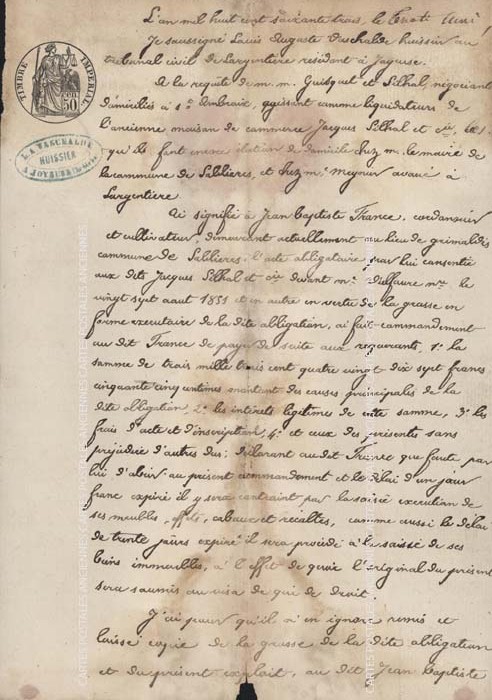 L'an mil huit cent soixante trois, le trente
Je soussigné Louis Auguste Vaschalde huissier au
tribunal civil de Largentière résidant à Joyeuse.
A la requête de m. m. Guisquet et Silhol, négociants
domiciliés à St Ambroix, agissant comme liquidateurs de
l'ancienne maison de commerce Jacques Silhol et cie,
qu'ils font encore élection de domicile chez mr le maire de
la commune de Sablières, et chez mr Meynier avoué à
Largentière
Ai signifié à Jean Baptiste France, cordonnier
et cultivateur, demeurant actuellement au lieu de
commune de Sablières: l'acte obligatoire par lui consentie
aux dits Jacques Silhol et cie devant mr nre le
vingt sept aout 1851 et en outre en vertu de la grosse en
forme executoire de la dite obligation, ai fait commandement
au dit France de payer de suite aux requerants, 1° la
somme de trois mille trois cent quatre vingt dix sept francs
cinquante cinq centimes montant des causes principales de la
dite obligation, 2° les intérêts legitimes de cette somme, 3° les
frais d'acte et d'inscription, 4° et ceux des présentes sans
préjudice d'autres dus: déclarant audit France que faute par
lui d'obéir au présent commandement et le délai d'un jour
franc expiré il y sera contraint par la saisie execution de
ses meubles, effets, cabaux et récoltes, comme aussi le délai
de trente jours expiré il sera procédé à la saisie de ses
biens immeubles, à l'effet de quoi l'original du présent
sera soumis au visa de qui de droit.
J'ai pour qu'il n'en ignore remis et
laissé copie de la grosse de la dite obligation
et du présent exploit, au dit Jean Baptiste
TIMBRE IMPERIAL
50 cen
L. A. VASCHALDE
HUISSIER
A JOYEUSE
CARTES POSTALES ANCIENNES